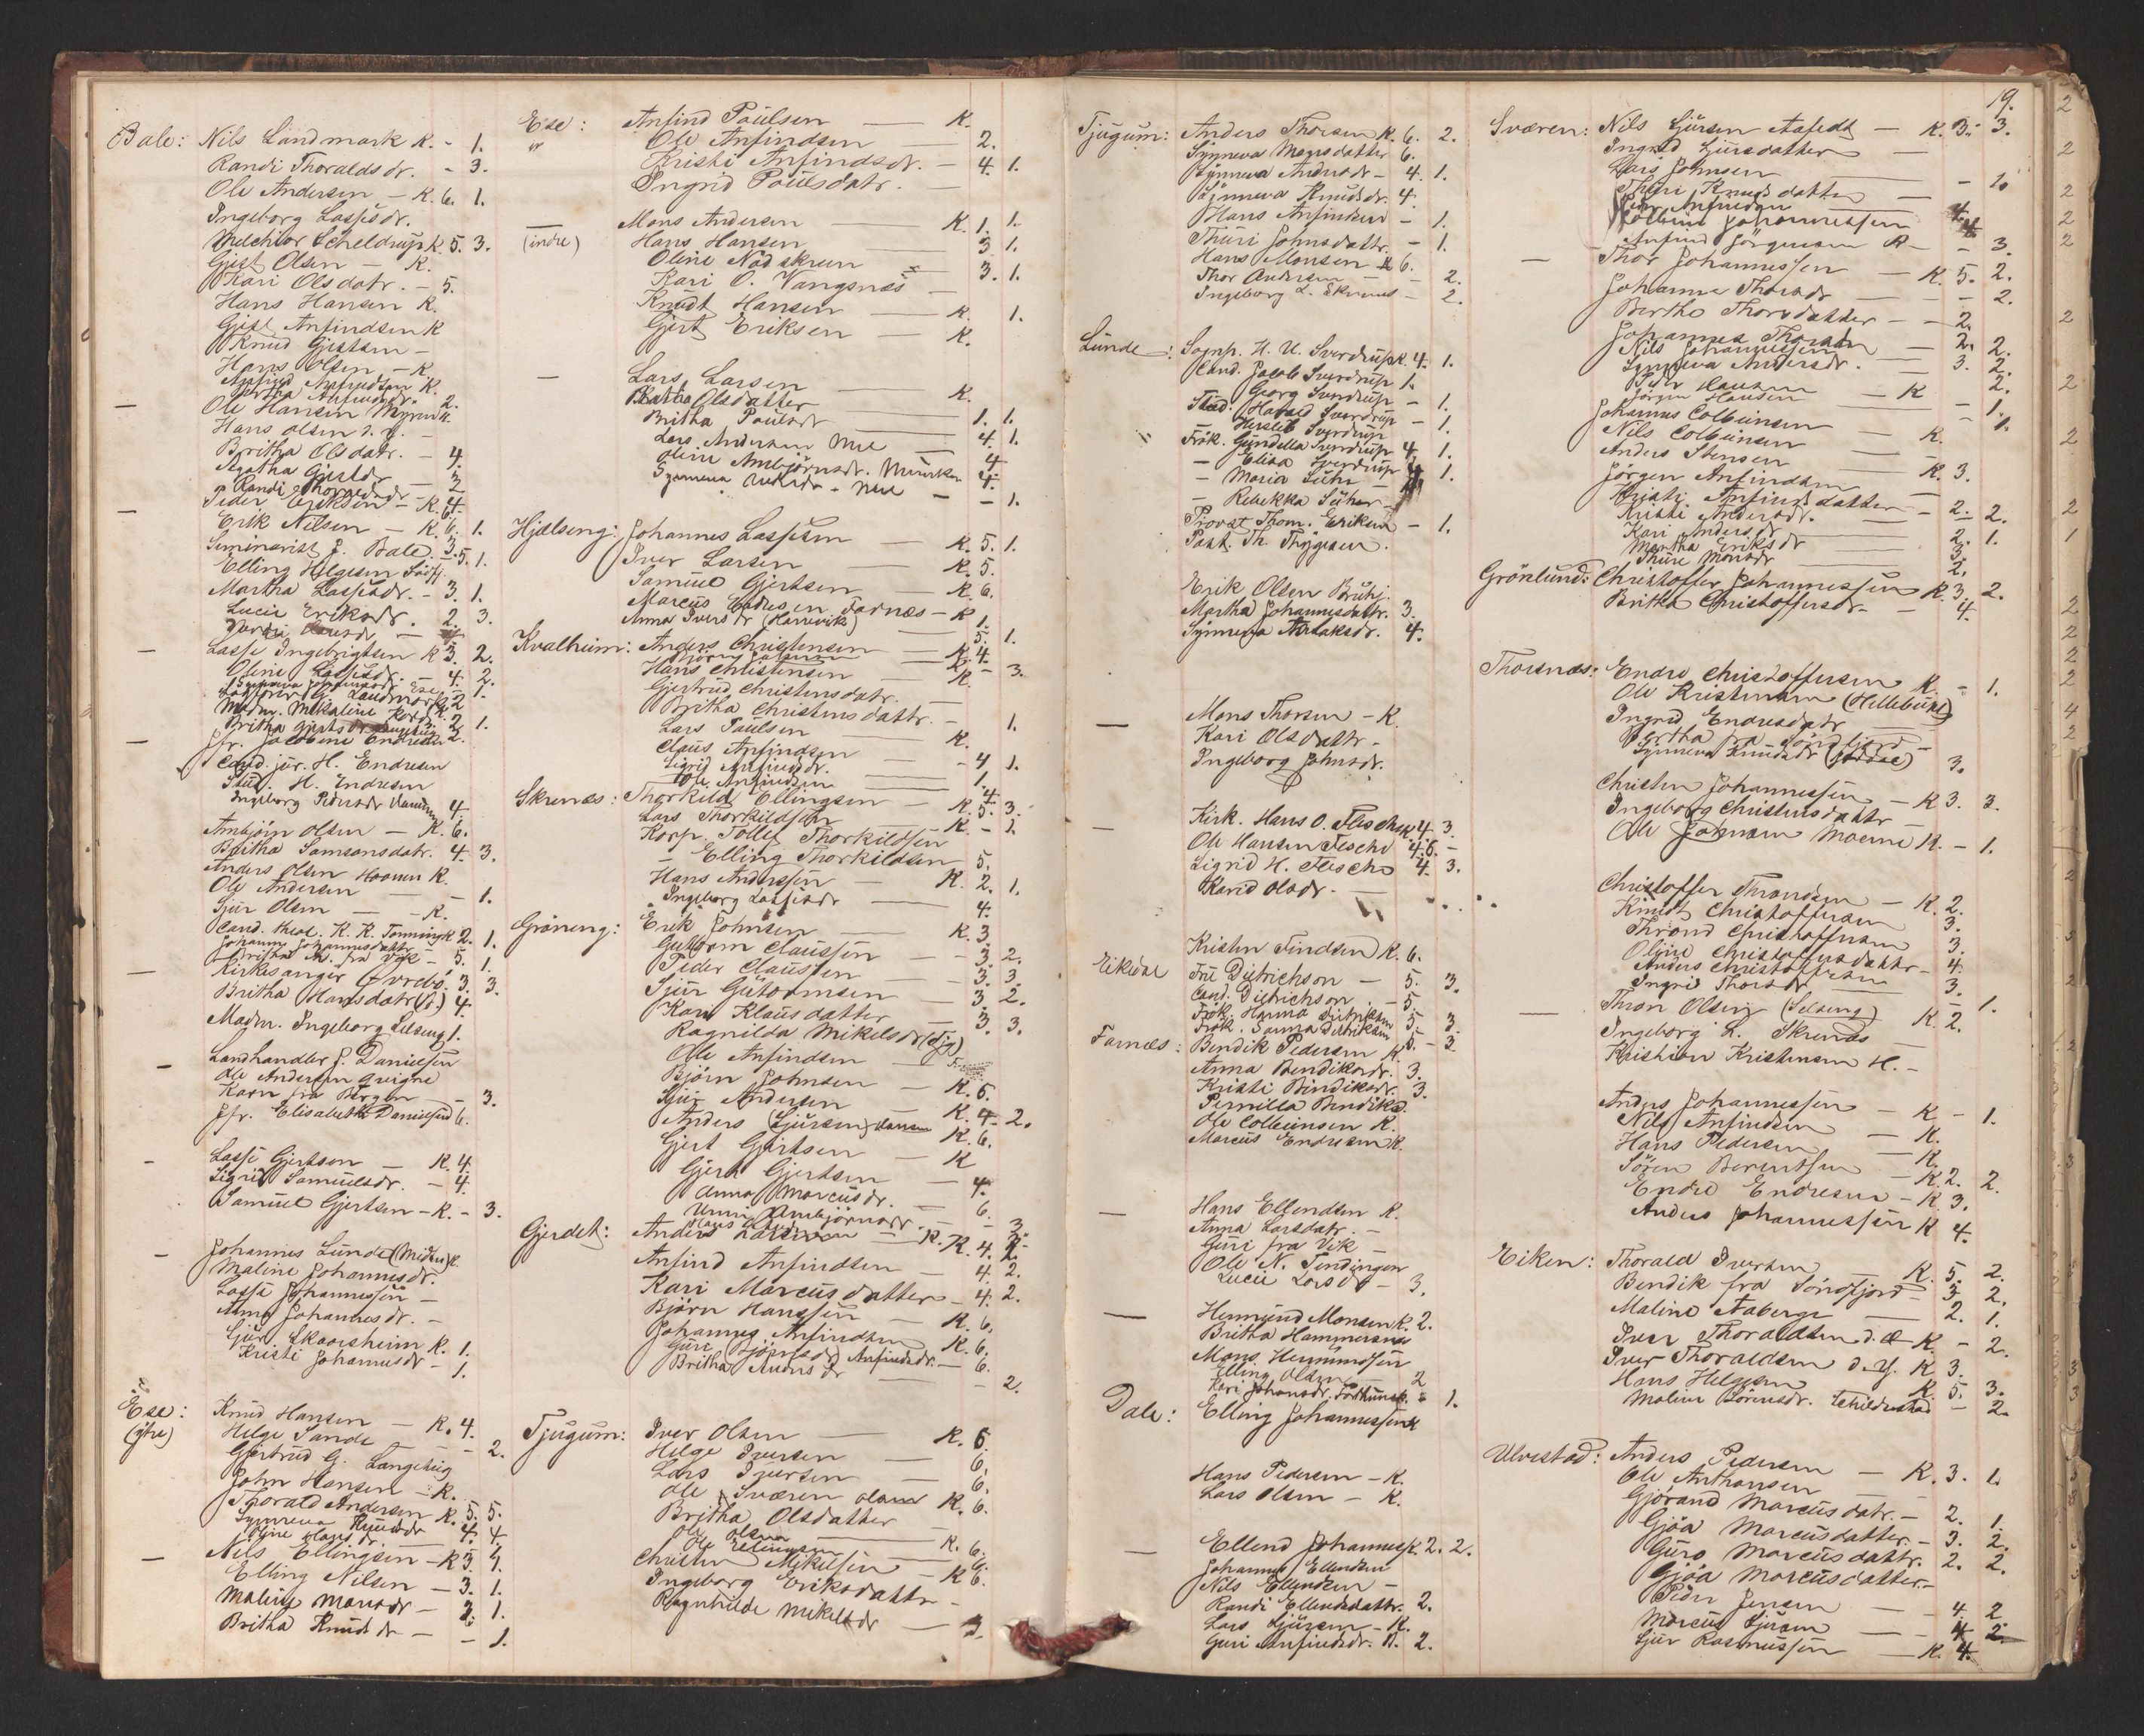 Bale: Nils Landmark K. - 1.
Randi Thoraldsdr. - 3.
Ole Andersen - K. 6. 1.
Ingeborg Lassesdr.
Melchior Scheldrup K 5. 3.
Gjest Olsen - K.
Kari Olsdatr. - 5.
Hans Hansen K.
Gjest Anfindsen K
Knud Gjertsen -
Hans Olsen - K.
Anfind Anfindsen K.
Anfindsdr. 2.
Ole Hansen
Hans Olsen d. y. -
Britha Olsdatr. - 4.
Agatha Gjertsdr - 3
Randi
Peder Eriksen - K. 4.
Erik Nilsen - K. 6. 1.
Seminarist J. Bale. 3.
Elling Helgesen 5. 1.
Martha Lassesdr. - 3. 1.
Lucie Eriksdr. 2. 3.
Lasse Ingebrigtsen K 3. 2.
Oline Lassesdr. - 4. 2.
G. Landmark 2
Madm. Mikaline
Britha Gjertsdr 2. 1.
Jfr. Jacobine Endresen 2.
Cand. jur. H. Endresen
Stud. H. Endresen
Ingeborg Pedersdr 4.
Ambjörn Olsen - K. 6.
Britha Samsonsdatr. 4. 3.
Anders Olsen K.
Ole Andersen - - 1.
Sjur Olsen - - K.
Cand. theol. K. K. Tönning K 2. 1.
Johanne Johannesdattr
fra Vik - 5. 1.
Kirkesanger Övrebö. 3. 3.
Britha Hansdatr 4.
Madm. Ingeborg Selseng 1.
Landhandler J. Danielsen
Ole Andersen Qvigne
Karn fra Bergen - 3.
Jfr. Elisabeth Danielsen 6.
Lasse Gjertsen - K. 4.
Sigrid Samuelsdr. - 4.
Samuel Gjertsen - K. - 3.
Johannes Lunde (Midtun) K.
Maline Johannesdr.
Lasse Johannessen -
Anna Johannesdr. -
Sjur Skaasheim K. 1.
Kristi Johannesdr - 1.
Ese: (ytre) Knud Hansen - K. 4.
Helge Sande - 2.
Gjertrud G. Langehug
John Hansen - K.
Thorald Andersen K. 5. 5.
Synneva Knudsdr 4. 4
Oline Hansdr.
Nils Ellingsen - K 3. 1.
Elling Nilsen - 3. 1.
Maline Monsdr - 3. 1.
Britha Knudsdr - - 1.
Ese: Anfind Poulsen - K.
Ole Anfindsen - 2.
Kristi Anfindsdr. - 4. 1.
Ingrid Poulsdatr. -
(indre) Mons Andersen - K. 1. 1.
Hans Hansen 3 1.
Oline Nödskrun
Kari O. Vangsnæs - 3. 1.
Knudt Hansen -
Gjert Eriksen - K. 1.
Lars Larsen - K.
Britha Olsdatter
Britha Poulsdr - 1. 1.
Lars Andersen - 4. 1.
Oline Ambjörnsdr. 4
Synneva - - 1.
Hjælseng: Johannes Lassesen - K. 5. 1.
Iver Larsen - K. 5.
Samuel Gjertsen - K. 6.
Marcus Endresen Farnæs - K
Anna Iversdr 1.
Kvalheim: Anders Christensen - 5. 1.
Hans Christensen - K. - 3.
Gjertrud Christensdatr.
Britha Christensdattr. - 1.
Lars Poulsen - K.
Claus Anfindsen
Sigrid Anfindsdr. - 4 1.
Ole Anfindsen 1.
Skrenæs: Thorkild Ellingsen - K. 5. 3.
Lars Thorkildsen - K. - 1.
Korp. Tollef Thorkildsen
- Elling Thorkildsen 5.
Hans Anderssen - K. 2. 1.
Ingeborg Lassesdr - 4.
Gröneng: Erik Johnsen - K. 3.
Guttorm Claussen - 3 2.
Peder Claussen - 3. 3
Sjur Guttormsen - 3 2.
Kari Klausdatter
Ragnilda Mikelsdr 3. 3.
Ole Anfindsen
Björn Johnsen - K. 6.
Sjur Andersen
Anders (Sjursen) K. 4. 2.
Gjert Gjertsen K. 6.
Gjert Gjertsen - K
Anna Marcusdr. 4.
Unni Ambjörnsdr. 6.
Gjerdet: Anders Larsen - K. 4. 2.
Anfind Anfindsen - 4 2.
Kari Marcusdatter - 4. 2.
Björn Hanssen - K. 6.
Johannes Anfindsen K. 6.
Guri Björnsdr
Britha Andersdr - 6. - 2.
Tjugum: Iver Olsen - K. 6.
Helge Iversen - 6.
Lars Iversen - 6.
Ole Sværen K. 6.
Britha Olsdatter
Ole Olsen
Ole Ellingsen - K. 6.
Christen Mikelsen - K 6.
Ingeborg Eriksdattr -
Ragnhilde Mikelsdr - 3.
Tjugum: Anders Thorsen K. 6. 2.
Synneva Monsdatter 6.
Synneva Andersdr - 4. 1.
Synneva Knudsdr. 4.
Hans Anfindsen - 1.
Thuri Johnsdattr. - 1.
Hans Monsen K 6.
Thor Andersen - 2.
Ingeborg L. Skrenæs - 2.
Lunde: Sognp. H. U. Sverdrup K. 4. 1.
Cand. Jacob Sverdrup 1.
Georg Sverdrup - 1.
Stud. Harald Sverdrup - 1.
Herslib Sverdrup
Frök. Gundella Sverdrup 4. 1.
- Elisa Sverdrup 4 1.
- Maria Suhr
- Rebekka Suhr -
Provst Thom. Eriksen - 1.
Past. Th. Thygesen.
Erik Olsen Bruhj.
Martha Johannesdattr. 3.
Synneva Aslaksdr. 4.
Mons Thorsen - K.
Kari Olsdattr -
Ingeborg Johnsdr.
Kirk. Hans O. Flesche K 4. 3.
Ole Hansen Flesche 4. 6. -
Sigrid H. Flesche 4. 3.
Karid Olsdr. -
Kristen Findsen K. 6.
Eikdal Fru Ditrichson - 5. 3.
Cand. Ditrichson - 5
Frök. Hanna Ditrichsen 5. 3.
Frök. Sanna Ditrichsen 5 - 3
Farnæs: Bendik Pedersen K.
Anna Bendiksdr. 3.
Kristi Bendiksdr. 3.
Pernilla Bendiksd.
Ole Colbeinsen K.
Marcus Endresen K.
Hans Ellendsen K.
Anna Larsdatr. -
Guri fra Vik -
Ole N. Tendingen
Lucie Larsdr - 3.
Hermund Monsen K. 2.
Britha Hammersnæs
Mons Hermundsen
Elling Olsen - 2
Kari Johansdr. 1.
Dale: Elling Johannessen K
Hans Pedersen - K.
Lars Olsen - K.
Ellend Johannes K. 2. 2.
Johannes Ellendsen
Nils Ellendsen -
Randi Ellendsdattr. 2.
Lars Sjursen - K.
Guri Anfindsdr. 2.
19.
Sværen: Nils Sjursen Aafedt - K. 3. 3.
Ingrid Sjursdatter -
Lars Johnsen - 1.
Thuri Knudsdatter
Colbein Johannessen 4.
Anfind Jörgensen K - 3.
Thor Johannessen - K. 5. 2.
Johanna Thorsdr - 2.
Berthe Thorsdatter - - 2.
Johannes Thorsen - 2. 2.
Nils Johannessen
Synneva Andersdr. - 3. 2.
Peder Hansen 2.
Jörgen Hansen - K - 1.
Johannes Colbeinsen - 1.
Nils Colbeinsen - K.
Anders Stensen
Jörgen Anfindsen - K. 3.
Kristi Anfindsdatter - 2. 2.
Kristi Andersdr.
Kari Andersdr 2. 1.
Martha Eriksdr 3.
Thuri Monsdr 2.
Grönlund: Christoffer Johannessen K. 3. 2.
Britha Christoffersdr - 4.
Thorsnæs: Endre Christoffersen K. - 1.
Ole Kristensen (Hellebust)
Ingrid Endresdatr -
Bertha fra Söndfjord -
Synneva Knudsdr (Jordal) 3.
Christen Johannessen - K 3. 3.
Ingeborg Christensdattr
Ole Johnsen Moeme K. - 1.
Christoffer Throndsen - K. 2.
Knudt Christoffersen 3.
Thrond Christoffersen 3.
Oline Christoffersdattr - 4.
Anders Christoffersen
Ingri Thorsdr - 3.
Thron Olsen (Selseng) K. 2. 1.
Ingeborg L. Skrenæs -
Kristian Kristensen H. -
Anders Johannessen - K - 1.
Nils Anfindsen - K.
Hans Pedersen - K.
Sören Berentsen - K 2. 2.
Endre Endresen - K. 3.
Anders Johannessen K 4.
Eiken: Thorald Iversen K. 5. 2.
Bendik fra Söndfjord 3 2.
Maline Aaberge - 2. 1.
Iver Thoraldsen d. æ K. - 2.
Iver Thoraldsen d. y. K 3.
Hans Helgesen K. 5. 3.
Maline Sörensdr. - 2.
Ulvestad: Anders Pedersen - K. 3. 1.
Ole Anthonsen
Gjörand Marcusdatr. - 2. 1.
Gjöa Marcusdatter. - 3. 2.
Guro Marcusdattr. 2. 2.
Gjöa Marcusdatter. -
Peder Jensen - 4. 2.
Marcus Sjursen - 4 2.
Sjur Rasmussen - K. 4.